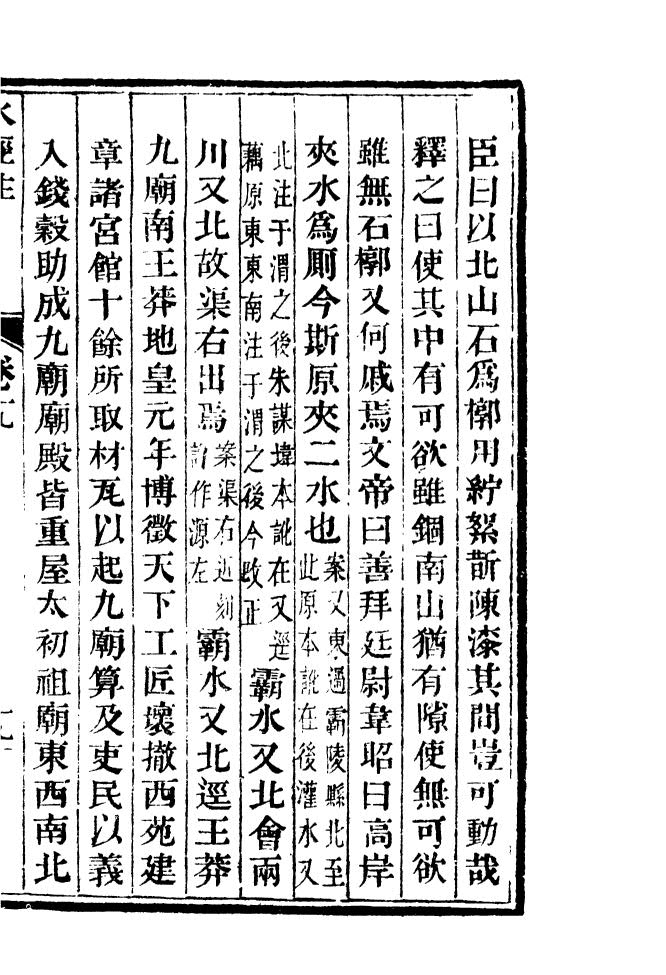 臣曰以北山石爲槨用紵絮斮陳漆其間豈可動哉
釋之曰使其中有可欲雖錮南山猶有隙使無可欲
雖無石槨又何戚焉文帝曰善拜廷尉韋昭曰高岸
夾水爲厠今斯原夾二水也案又東過霸陵縣北至
此原本訛在後灌水又
北注于渭之後朱謀㙔本訛在又逕
藕原東東南注于渭之後今改正霸水又北會兩
川又北故渠右出焉案渠右近刻
訛作源左霸水又北逕王莽
九廟南王莽地皇元年博徵天下工匠壞撤西苑建
章諸宮館十餘所取材瓦以起九廟算及吏民以義
入錢穀助成九廟廟殿皆重屋太初祖廟東西南北
水經注
卷十九